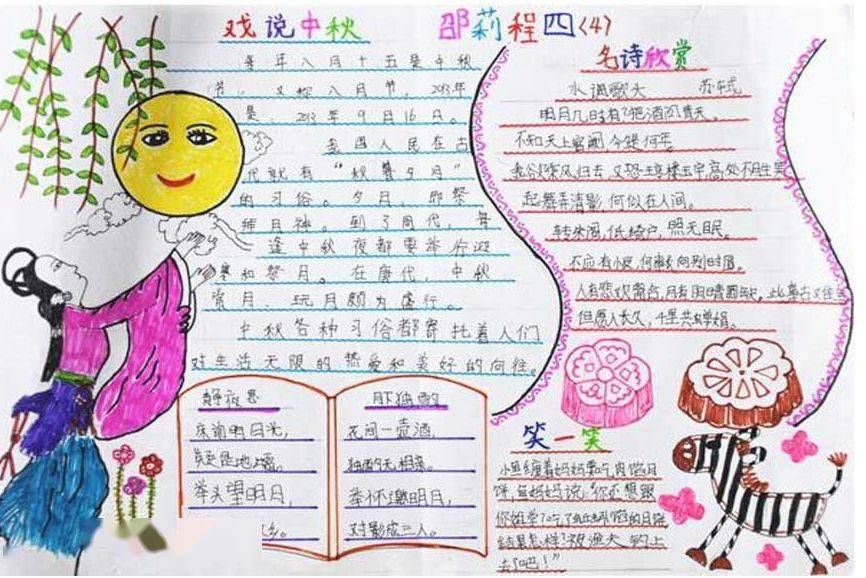 戏说中秋 邵莉程四(4)
每年八月十五是中秋
节，又称八月节，2013年
是2013年9月16日。
我国人民在古
代就有“秋暮夕月”
的习俗。夕月，即祭
拜月神。到了周代，每
逢中秋夜都要举行迎
寒和祭月。在唐代，中秋
赏月、玩月颇为盛行。
中秋各种习俗都寄托着人们
对生活无限的热爱和美好的向往。
名诗欣赏
水调歌头 苏轼
明月几时有？把酒问青天。
不知天上宫阙，今夕是何年。
我欲乘风归去，又恐琼楼玉宇，高处不胜寒
起舞弄清影，何似在人间。
转朱阁，低绮户，照无眠。
不应有恨，何事长向别时圆。
人有悲欢离合，月有阴晴圆缺，此事古又难全
但愿人长久，千里共婵娟。
静夜思
床前明月光，
疑是地上霜。
举头望明月，
乡。
月下独酌
花间一壶酒，
独酌无相亲。
举杯邀明月，
对影成三人。
笑一笑
小鱼缠着妈妈要吃肉馅月
饼，鱼妈妈说，“你还想跟
你姐学？吃了蚯蚓馅的月饼
结果怎样？被渔夫钓上
去了吧！”